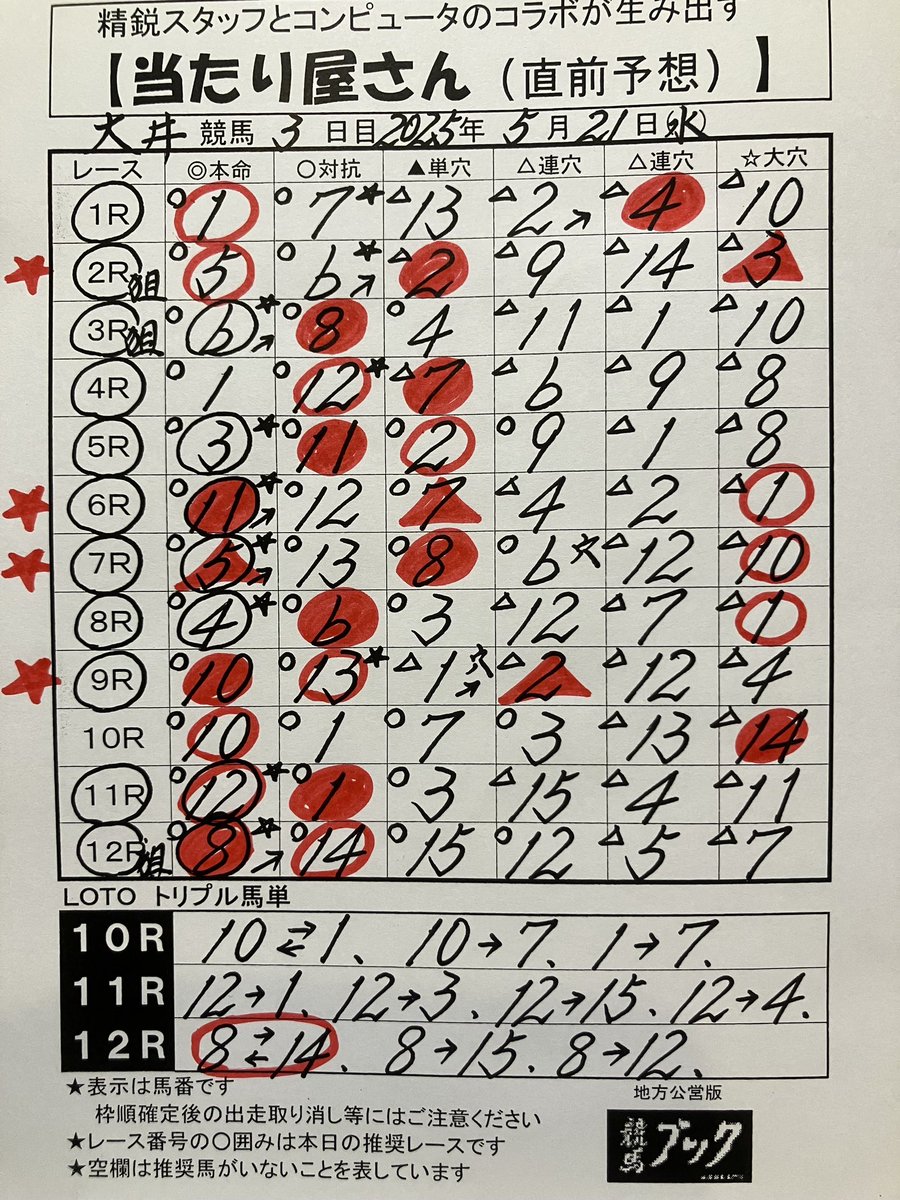 精鋭スタッフとコンピュータのコラボが生み出す
【当たり屋さん（直前予想）】
大井 競馬 3 日目 2025年 5月 21日(水)
レース ◎本命 ○対抗 ▲単穴 △連穴 △連穴 ☆大穴
1R ○1 ○7★ △13 △2→ △4 △10
2R狙 ○5 ○6★→ △2 △9 △14 △3
3R狙 ○6★→ ○8 ○4 △11 △1 △10
4R ○1 ○12★ △7 △6 △9 △8
5R ○3★ ○11 ○2 ○9 △1 △8
6R ○11★→ ○12 ○7 △4 △2 △1
7R ○5★→ ○13 ○8 ○6穴 △12 △10
8R ○4★ ○6 ○3 △12 △7 △1
9R ○10 ○13★ △1穴→ △2 △12 △4
10R ○10 ○1 ○7 ○3 △13 △14
11R ○12★ ○1 ○3 △15 △4 △11
12R狙 ○8★→ ○14 ○15 ○12 △5 △7
LOTO トリプル馬単
10R 10⇄1、10→7、1→7、
11R 12→1、12→3、12→15、12→4、
12R 8⇄14、8→15、8→12、
★表示は馬番です
枠順確定後の出走取り消し等にはご注意ください
★レース番号の〇囲みは本日の推奨レースです
★空欄は推奨馬がいないことを表しています
地方公営版
競馬ブック